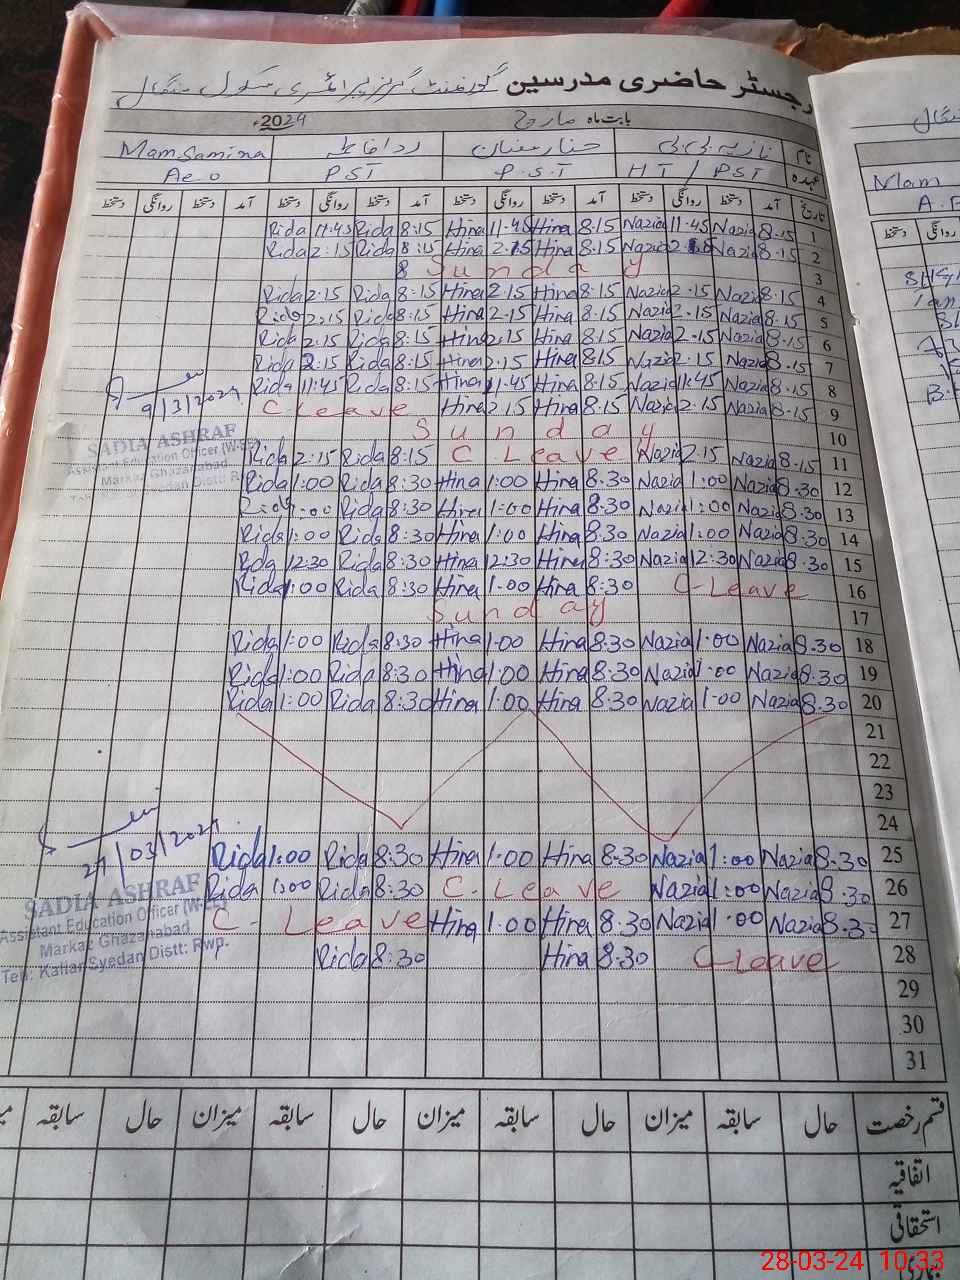 رجسٹر حاضری مدرسین گورنمنٹ گرلز پرائمری سکول
بابت ماہ مارچ 2024ء
نام نازیہ بی بی حنا رمضان ردا فاطمہ Mam Samina
عہدہ HT / PST P.S.T PST Aeo
تاریخ آمد دستخط روانگی دستخط آمد دستخط روانگی دستخط آمد دستخط روانگی دستخط آمد دستخط روانگی دستخط
Rida 11:45 Rida 8:15 Hina 11-45 Hina 8.15 Nazia 11-45 Nazia 8.15 1
Rida 2:15 Rida 8:15 Hina 2.15 Hina 8.15 Nazia Nazia 8.15 2
8 Sunday 3
Rida 2:15 Rida 8:15 Hina 2.15 Hina 8.15 Nazia 2.15 Nazia 8.15 4
Rida 2:15 Rida 8:15 Hina 2.15 Hina 8.15 Nazia 2.15 Nazia 8.15 5
Rida 2:15 Rida 8:15 Hina 2.15 Hina 8.15 Nazia 2.15 Nazia 8.15 6
Rida 2:15 Rida 8:15 Hina 2.15 Hina 8.15 Nazia 2.15 Nazia 8.15 7
Rida 11:45 Rida 8:15 Hina 11.45 Hina 8.15 Nazia 11.45 Nazia 8.15 8
9/3/2024 C-Leave Hina 2.15 Hina 8.15 Nazia 2.15 Nazia 8.15 9
Sunday 10
SADIA ASHRAF
Assistant Education Officer (W-EE)
Markaz Ghazanabad
Rida 2:15 Rida 8:15 C-Leave Nazia 2.15 Nazia 8.15 11
Rida 1:00 Rida 8:30 Hina 1:00 Hina 8.30 Nazia 1:00 Nazia 8.30 12
Rida 1:00 Rida 8:30 Hina 1:00 Hina 8.30 Nazia 1:00 Nazia 8.30 13
Rida 1:00 Rida 8:30 Hina 1:00 Hina 8.30 Nazia 1:00 Nazia 8.30 14
Rida 12:30 Rida 8:30 Hina 12:30 Hina 8.30 Nazia 12:30 Nazia 8.30 15
Rida 1:00 Rida 8:30 Hina 1.00 Hina 8:30 C-Leave 16
Sunday 17
Rida 1:00 Rida 8:30 Hina 1.00 Hina 8.30 Nazia 1.00 Nazia 8.30 18
Rida 1:00 Rida 8:30 Hina 1.00 Hina 8.30 Nazia 1.00 Nazia 8.30 19
Rida 1:00 Rida 8:30 Hina 1.00 Hina 8.30 Nazia 1.00 Nazia 8.30 20
21
22
23
24
27/03/2024
Rida 1:00 Rida 8:30 Hina 1.00 Hina 8.30 Nazia 1:00 Nazia 8.30 25
Rida 1:00 Rida 8:30 C-Leave Nazia 1:00 Nazia 8.30 26
C-Leave Hina 1.00 Hina 8.30 Nazia 1.00 Nazia 8.30 27
Rida 8:30 Hina 8.30 C-Leave 28
SADIA ASHRAF
Assistant Education Officer (W-EE)
Markaz Ghazanabad
Teh: Kallar Syedan Distt: Rwp.
29
30
31
قسم رخصت حال سابقہ میزان حال سابقہ میزان حال سابقہ میزان حال سابقہ
اتفاقیہ
استحقاقی
Mam
دستخط روانگی
28-03-24 10:33